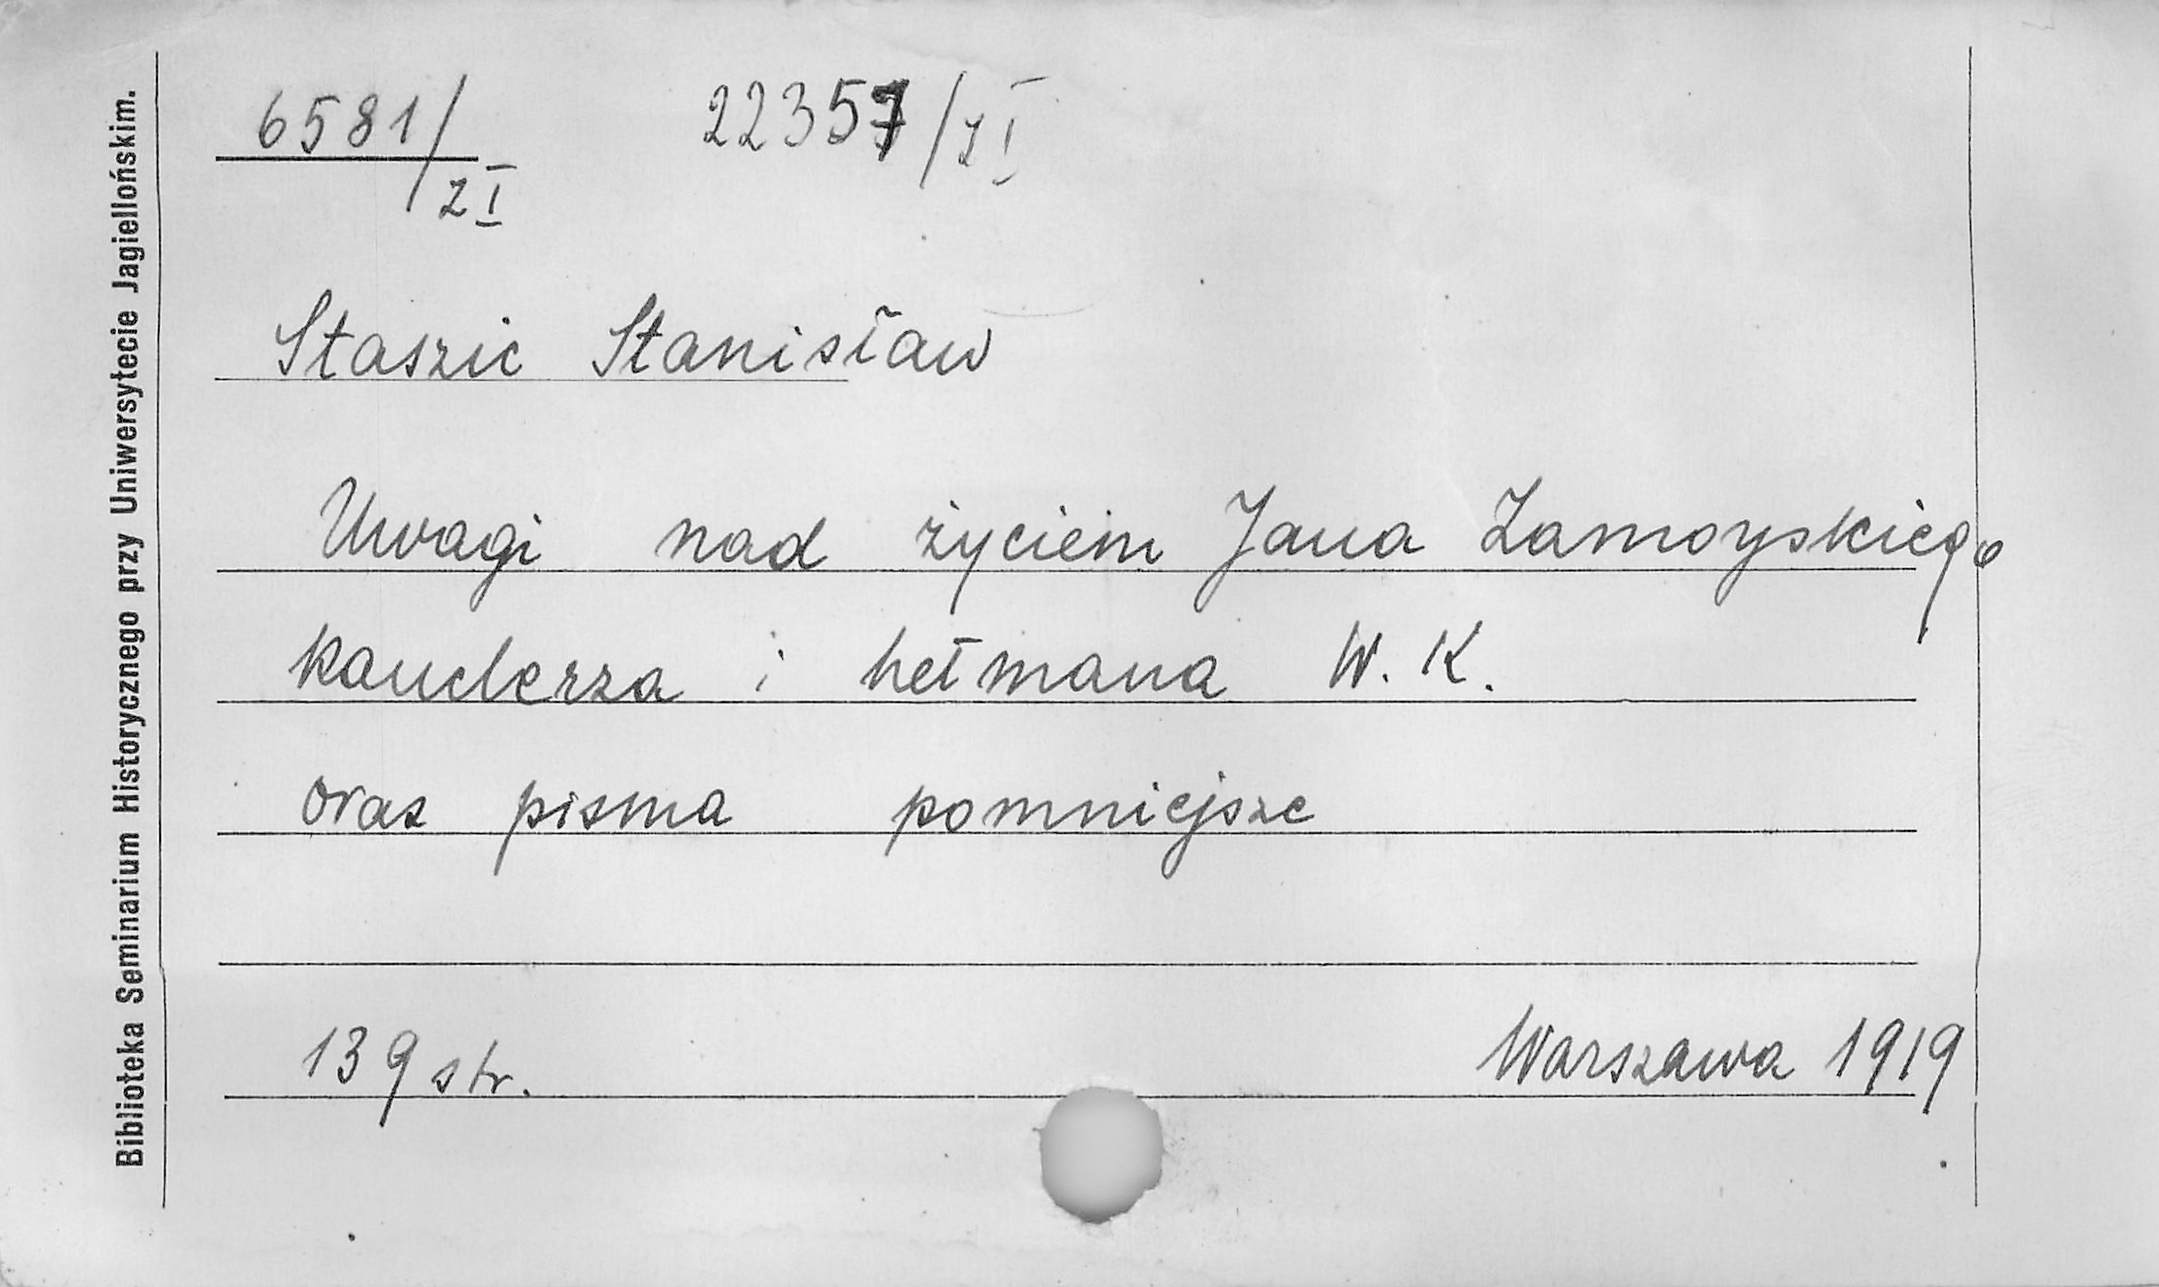 6581/zI 22357/zI
Staszic Stanisław
Uwagi nad życiem Jana Zamoyskiego
kanclerza i hetmana W. K.
oraz pisma pomniejsze
139 str. Warszawa 1919
Biblioteka Seminarium Historycznego przy Uniwersytecie Jagiellońskim.